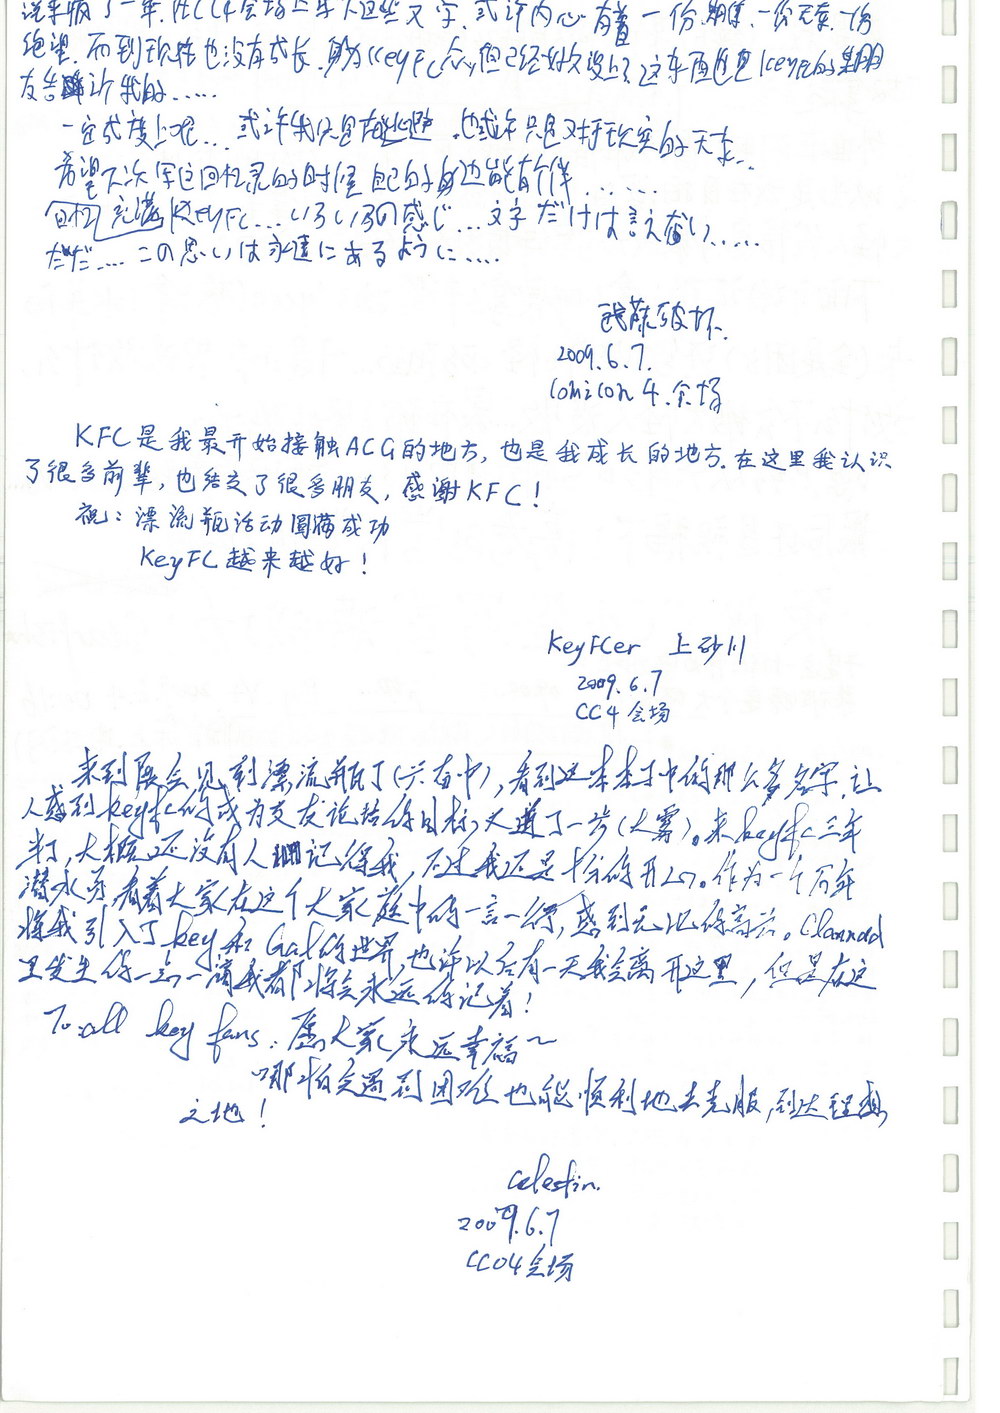 在CC4会场上写下这些文字,或许内心有着一份期待,一份无奈,一份
绝望,而到现在也没有成长,身为KeyFC众,但已经好久没上了,这东西也是KeyFC的朋
友告诉我的……
一定或度上呢…或许我只是在逃避,也或许只是对于现实的无奈…
希望下次写这回忆录的时候自己的身边能有个伴……
回忆充满KeyFC…いろいろの感じ…文字だけは言えない……
ただ…この思いは永遠にあるように……
2009.6.7.
Comicon 4.会场
KFC是我最开始接触ACG的地方,也是我成长的地方.在这里我认识
了很多前辈,也结交了很多朋友,感谢KFC!
祝:漂流瓶活动圆满成功
KeyFC越来越好!
KeyFCer 上砂川
2009.6.7
CC4会场
来到展会见到漂流瓶了(兴奋中),看到这本本子中的那么多名字,让
人感到keyfc的成为交友论坛的目标,又进了一步(大雾)。来keyfc三年
半了,大概还没有人记得我,不过我还是十分的开心。作为一个万年
潜水员,看着大家在这个大家庭中的一言一行,感到无比的高兴。Clannad
将我引入了key和Gal的世界,也许以后有一天我会离开这里,但是在这
里发生的一点一滴我都将会永远的记着!
To all key fans:愿大家永远幸福~
哪怕交遇到困难也能顺利地去克服,到达理想
之地!
celestin.
2009.6.7
CC04会场